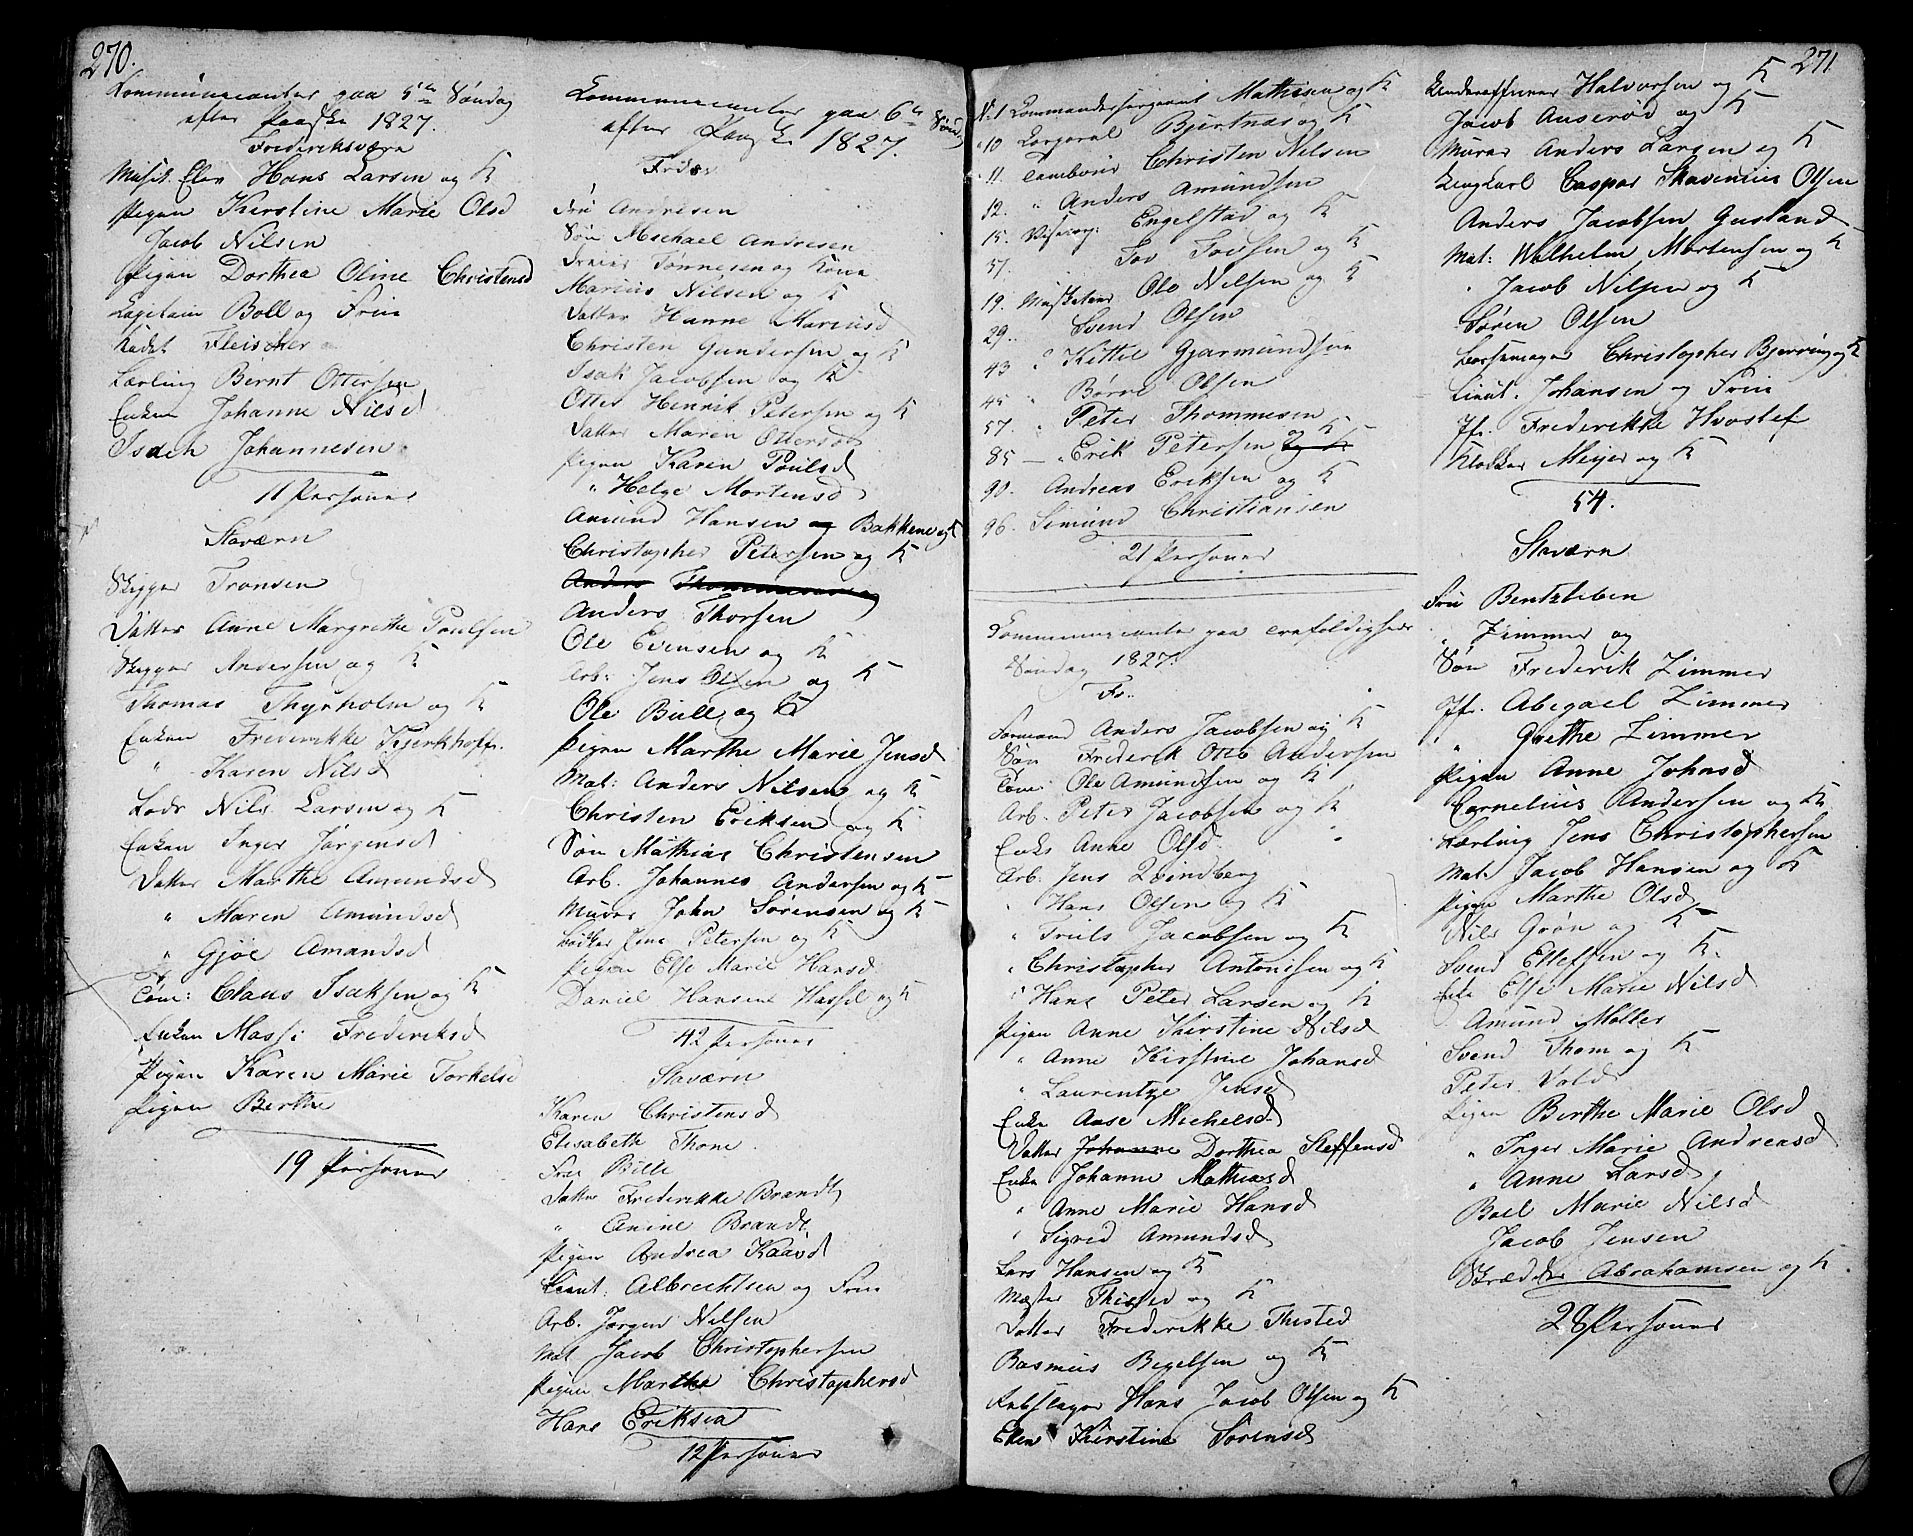 270.
Communicanter paa 5te Søndag
efter Paaske 1827.
Frederiksværn
Musik. Elev Hans Larsen og K
Pigen Kirstine Marie Olsd
Jacob Nilsen
Pigen Dorthea Oline Christensd
Capitain Boll og Frue
Kadet Fleischer
Lærling Bernt Ottersen
Enken Johanne Nilsd
Isach Johannesen
11 Personer
Staværn
Skipper Tronsen
Datter Anne Margrethe Poulsen
Skipper Andersen og K
Thomas Thyrholm og K
Enken Frederikke Kierkhoff
" Karen Nilsd
Lods Nils Larsen og K
Enken Inger Jørgensd
Datter Marthe Amundsd
" Maren Amundsd
" Gjøe Amandsd
Tøm: Claus Isaksen og K
Enken Massi Frederiksd
Pigen Karen Marie Torkelsd
Pigen Berthe
19 Personer
Communicanter paa 6te Sønd
efter Paaske 1827.
Frdsv
Fru Andresen
Søn Michael Andresen
Tønnesen og Kone
Marius Nilsen og K
Datter Hanne Mariusd
Christen Gundersen og K
Isak Jacobsen og K
Otter Henrik Petersen og K
Datter Maren Ottersd
Pigen Karen Poulsd
" Helge Mortensd
Amund Hansen og Bakkene og K
Christopher Petersen og K
Anders Thommesen og
Anders Thorsen
Ole Evensen og K
Arb: Jens Olsen og K
Ole Bull og K
Pigen Marthe Marie Jensd
Mat: Anders Nilsen og K
Christen Eriksen og K
Søn Mathias Christensen
Arb. Johannes Andersen og K
Murer John Sørensen og K
Bødker Jens Petersen og K
Pigen Else Marie Hansd
Daniel Hansen Hassel og K
42 Personer
Staværn
Karen Christensd
Elisabeth Thom
Frue Bille
Datter Frederikke Brandt
" Canine Brandt
Pigen Andrea Kaavd
Lieut: Albrechtsen og Frue
Arb. Jørgen Nilsen
Mat Jacob Christophersen
Pigen Marthe Christophersd
Hans Eriksen
12 Personer
271
No 1 Commandersergeant Mathisen og K
" 10 Corporal Bjertnæs og K
" 11. Tambour Christen Nilsen
12. " Anders Amundsen
15. Visecorp: Engelstad og K
57. Tov Tovsen og K
19. Musketeer Ole Nilsen og K
29. Svend Olsen
43 " Kittil Gjarmundsen
45 " Børre Olsen
57. " Peter Thommesen
85 — " Erik Petersen og K
90. Andreas Eriksen og K
96. Simund Christiansen
21 Personer
Communicanter paa Trefoldigheds
Søndag 1827.
Fr.
Formand Anders Jacobsen og K
Søn Frederik Otto Andersen
Tøm: Ole Amundsen og K
Arb. Peter Jacobsen og K
Enke Anne Olsd
Arb: Jens Qvindberg
" Hans Olsen og K
" Truls Jacobsen og K
" Christopher Antonisen og K
" Hans Peter Larsen og K
Pigen Anne Kirstine Nilsd
" Anne Kirstine Johansd
" Laurentze Jensd
Enke Aase Michelsd
Datter Johanne Dorthea Steffensd
Enke Johanne Mathiasd
" Anne Marie Hansd
" Sigred Amundsd
Lars Hansen og K
Mester Thisted og K
Datter Frederikke Thisted
Rasmus Begelsen og K
Rebslager Hans Jacob Olsen og K
Enken Kirstine Sørensd
Underofficerer Halvorsen og K
Jacob Auserød og K
Murer Anders Larsen og K
Tengkarl Caspar Skavenius Olsen
Anders Jacobsen Gusland
Mat: Wilhelm Mortensen og K
" Jacob Nilsen og K
Søren Olsen
Børsemager Christopher Bjerring og K
Lieut. Johansen og Frue
Jfr. Frederikke Hvoslef
Klokker Meijer og K
54.
Staværn
Fru Bentzleben
" Zimmer og
Søn Frederik Zimmer
Jfr. Abigael Zimmer
" Grethe Zimmer
Pigen Anne Johnsd
Cornelius Andersen og K
Lærling Jens Christophersen
Mat. Jacob Hansen og K
Pigen Marthe Olsd
Nils Grøn og K
Svend Ellefsen og K
Enke Else Marie Nilsd
Amund Møller
Svend Thom og K
Peter Vold
Pigen Berthe Marie Olsd
" Inger Marie Andreasd
" Anne Larsd
Boel Marie Nilsd
Jacob Jensen
Skrædder Abrahamsen og K
28 Personer